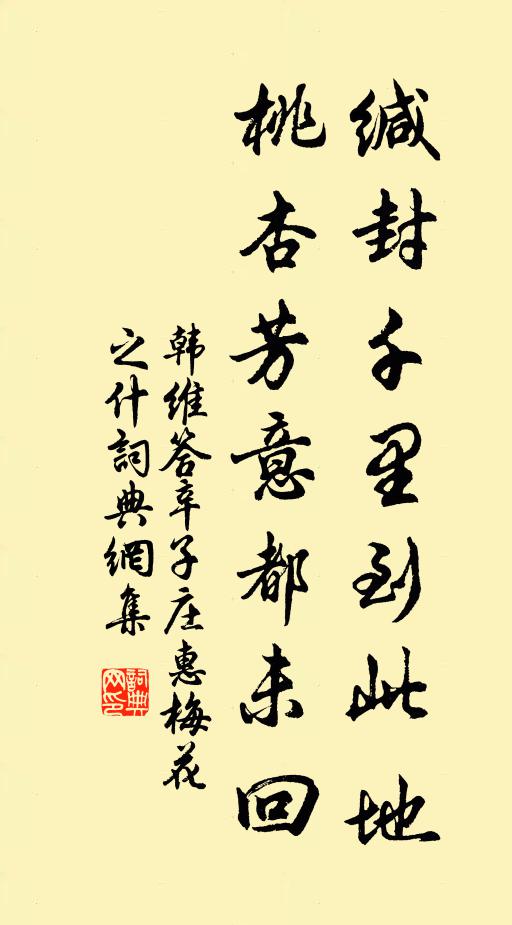 缄封千里到此地
桃杏芳意都未回
韩维答辛子庄惠梅花
之什詞典網集
詞典
网印